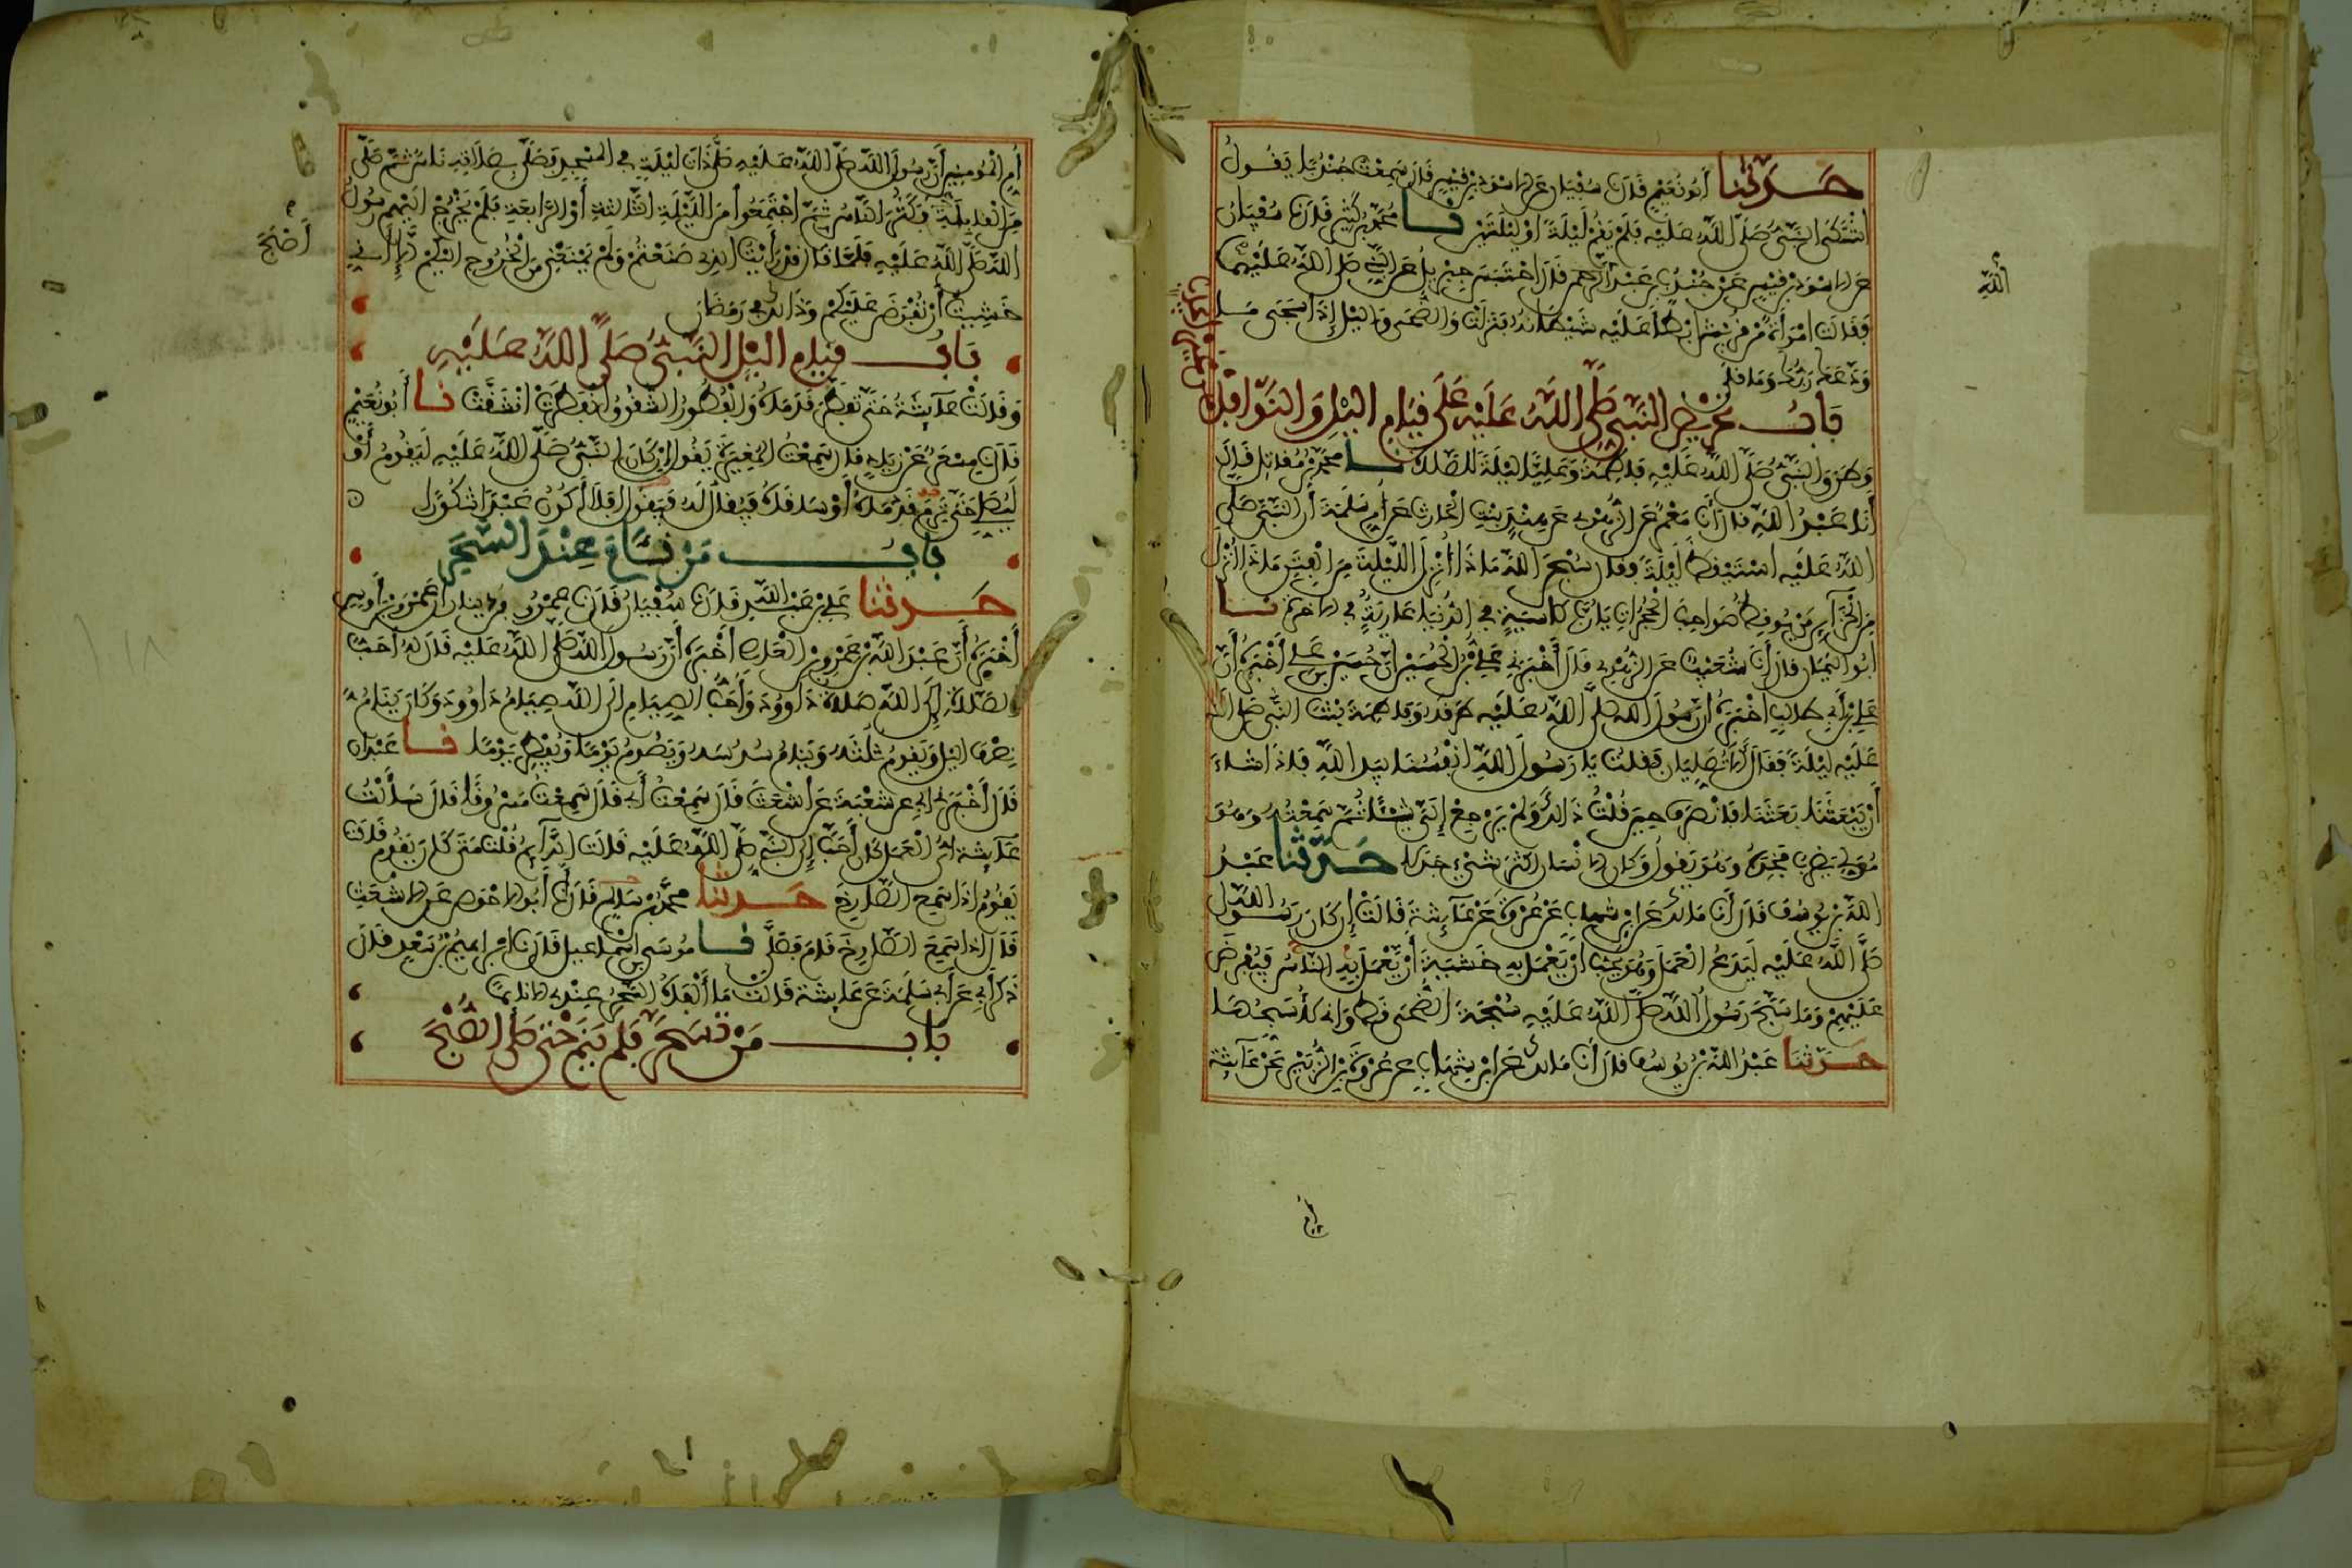 حدثنا أبو نعيم قال نا سفيان عن الاسود بن قيس قال سمعت جندبا يقول
اشتكى النبي صلى الله عليه فلم يقم ليلة او ليلتين نا محمد بن كثير قال نا سفيان
عن الاسود بن قيس عن جندب بن عبد الله قال احتبس جبريل عن النبي صلى الله عليهما
فقالت امرأة من قريش ابطأ عليه شيطانه فنزلت والضحى واليل إذا سجى ما
ودعك ربك وما قلى
باب تحريض النبي صلى الله عليه على قيام اليل والنوافل
من غير إيجاب
وطرق النبي صلى الله عليه فاطمة وعليا ليلة للصلاة نا محمد بن مقاتل قال
أنا عبد الله قال أنا معمر عن الزهري عن هند بنت الحارث عن أم سلمة أن النبي صلى
الله عليه استيقظ ليلة فقال سبحن الله ماذا أنزل الليلة من الفتن ماذا أنزل
من الخزآئن من يوقظ صواحب الحجرات يا رب كاسية في الدنيا عارية في الاخرة نا
ابو اليمان قال أنا شعيب عن الزهري قال أخبرني علي بن الحسين ان حسين بن علي أخبره أن
علي بن أبي طالب أخبره ان رسول الله صلى الله عليه طرقه وفاطمة بنت النبي صلى الله
عليه ليلة فقال ألا تصليان فقلت يا رسول الله انفسنا بيد الله فاذا شاء
أن يبعثنا بعثنا فانصرف حين قلت ذالك ولم يرجع إلي شيئا ثم سمعته وهو
مول يضرب فخذه وهو يقول وكان الانسان اكثر شيء جدلا حدثنا عبد
الله بن يوسف قال أنا مالك عن ابن شهاب عن عروة عن عائشة قالت إن كان رسول الله
صلى الله عليه ليدع العمل وهو يحب أن يعمل به خشية أن يعمل به الناس فيفرض
عليهم وما سبح رسول الله صلى الله عليه سبحة الضحى قط واني لأسبحها
حدثنا عبد الله بن يوسف قال أنا مالك عن ابن شهاب عن عروة بن الزبير عن عآئشة
أم
الله
أم المومنين أن رسول الله صلى الله عليه صلى ذات ليلة في المسجد فصلى بصلاته ناس ثم صلى
من القابلة فكثر الناس ثم اجتمعوا من الليلة الثالثة أو الرابعة فلم يخرج اليهم رسول
الله صلى الله عليه فلما قال قد رأيت الذي صنعتم ولم يمنعني من الخروج اليكم إلا أني
خشيت أن تفرض عليكم وذالك في رمضان
أصبح
باب قيام اليل النبي صلى الله عليه
وقالت عآئشة حتى تفطر قدماه والفطور الشقوق انفطرت انشقت نا أبو نعيم
قال نا مسعر عن زياد قال سمعت المغيرة يقول إن كان النبي صلى الله عليه ليقوم أو
ليصلي حتى ترم قدماه أو ساقاه فيقال له فيقول افلا أكون عبدا شكورا
باب من نام عند السحر
حدثنا علي بن عبد الله قال نا سفيان قال نا عمرو بن دينار أن عمرو بن أوس
أخبره أن عبد الله بن عمرو بن العاص أخبره أن رسول الله صلى الله عليه قال له أحب
الصلاة إلى الله صلاة داوود وأحب الصيام الى الله صيام داوود وكان ينام
نصف اليل ويقوم ثلثه وينام سدسه ويصوم يوما ويفطر يوما نا عبدان
قال أخبرني ابي عن شعبة عن اشعث قال سمعت أبي قال سمعت مسروقا قال سألت
عآئشة اي العمل كان أحب إلى النبي صلى الله عليه قالت الدآئم قلت متى كان يقوم قالت
يقوم اذا سمع الصارخ حدثنا محمد بن سلام قال أنا أبو الاحوص عن الاشعث
قال اذا سمع الصارخ قام فصلى نا موسى بن اسماعيل قال نا ابراهيم بن سعد قال
ذكر أبي عن أبي سلمة عن عائشة قالت ما ألفاه السحر عندي الا نائما
باب من تسحر فلم ينم حتى صلى الصبح